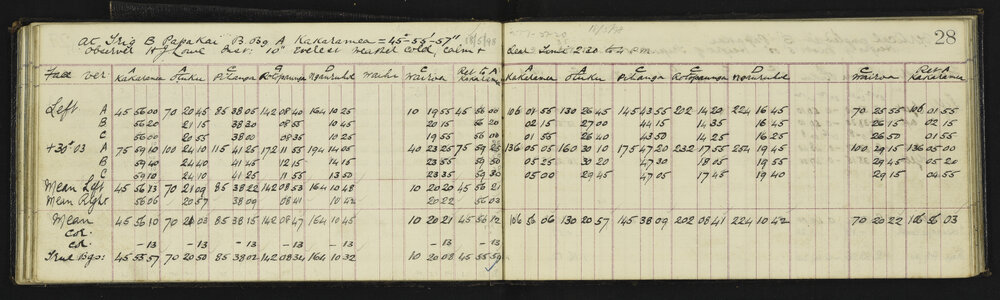 18/5/98
28
At Trig B Papakai B. Obs A Kakaramea = 45°-55'-57"
18/5/98
Observer H J Lowe Inst: 10" Everest weather cold, calm & clear Time 2.20 to 4 p.m.
Face ver: A Kakaramea A Otuku C Pihanga B Rotopaunga D Ngauruhoe Waihi C Wairoa Ret to A Kakaramea A Kakaramea A Otuku C Pihanga C Rotopaunga D Ngauruhoe C Wairoa Ret A Kakaramea
Left A 45 56 00 70 20 45 85 38 05 142 08 40 164 10 25 10 19 55 45 56 00 106 01 55 130 26 45 145 43 55 202 14 20 224 16 45 70 25 55 106 01 55
B 56 20 21 15 38 30 08 55 10 45 20 15 56 20 02 15 27 00 44 15 14 35 16 45 26 15 02 15
C 56 00 20 55 38 00 08 35 10 25 19 55 56 00 01 55 26 40 43 50 14 25 16 25 26 50 01 55
+30° 03 A 75 59 10 100 24 10 115 41 25 172 11 55 194 14 05 40 23 25 75 59 25 136 05 05 160 30 10 175 47 20 232 17 55 254 19 45 100 29 15 136 05 00
B 59 40 24 40 41 45 12 15 14 15 23 55 59 50 05 25 30 20 47 30 18 05 19 55 29 45 05 20
C 59 10 24 10 41 25 11 55 13 50 23 35 59 30 05 00 29 45 47 05 17 45 19 40 29 15 04 55
Mean Left 45 56 13 70 21 09 85 38 22 142 08 53 164 10 48 10 20 20 45 56 21
Mean Right 56 06 20 57 38 09 08 41 10 42 20 22 56 03
Mean 45 56 10 70 21 03 85 38 15 142 08 47 164 10 45 10 20 21 45 56 12 106 56 06 130 20 57 145 38 09 202 08 41 224 10 42 70 20 22 106 56 03
Cor.
Cor. - 13 - 13 - 13 - 13 - 13 - 13 - 13
True Bgs: 45 55 57 70 20 50 85 38 02 142 08 34 164 10 32 10 20 08 45 55 59